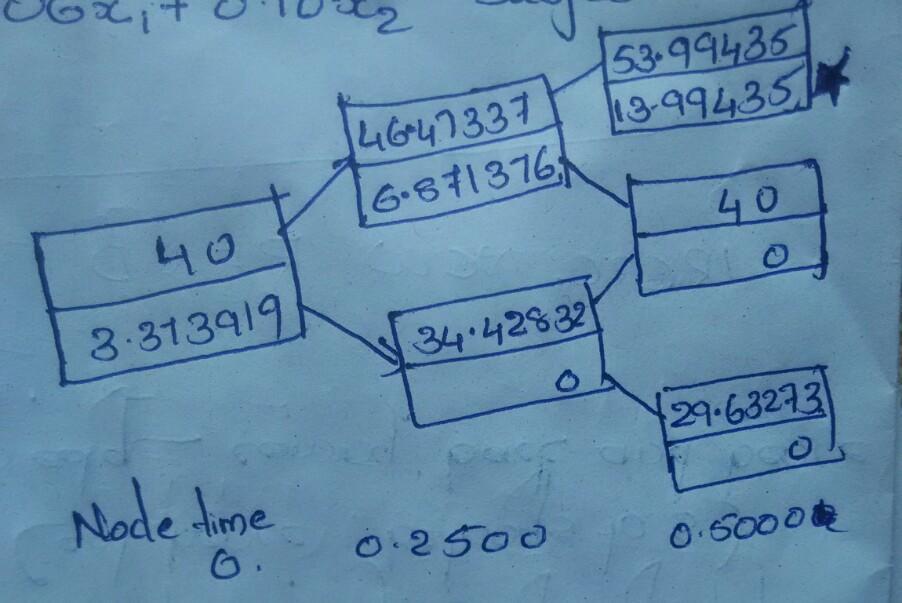 06x₁ + 0.10x₂
53.99435
13.99435
46.47337
6.871376
40
0
40
3.313919
34.42832
0
29.63273
0
Node time
0. 0.2500 0.5000